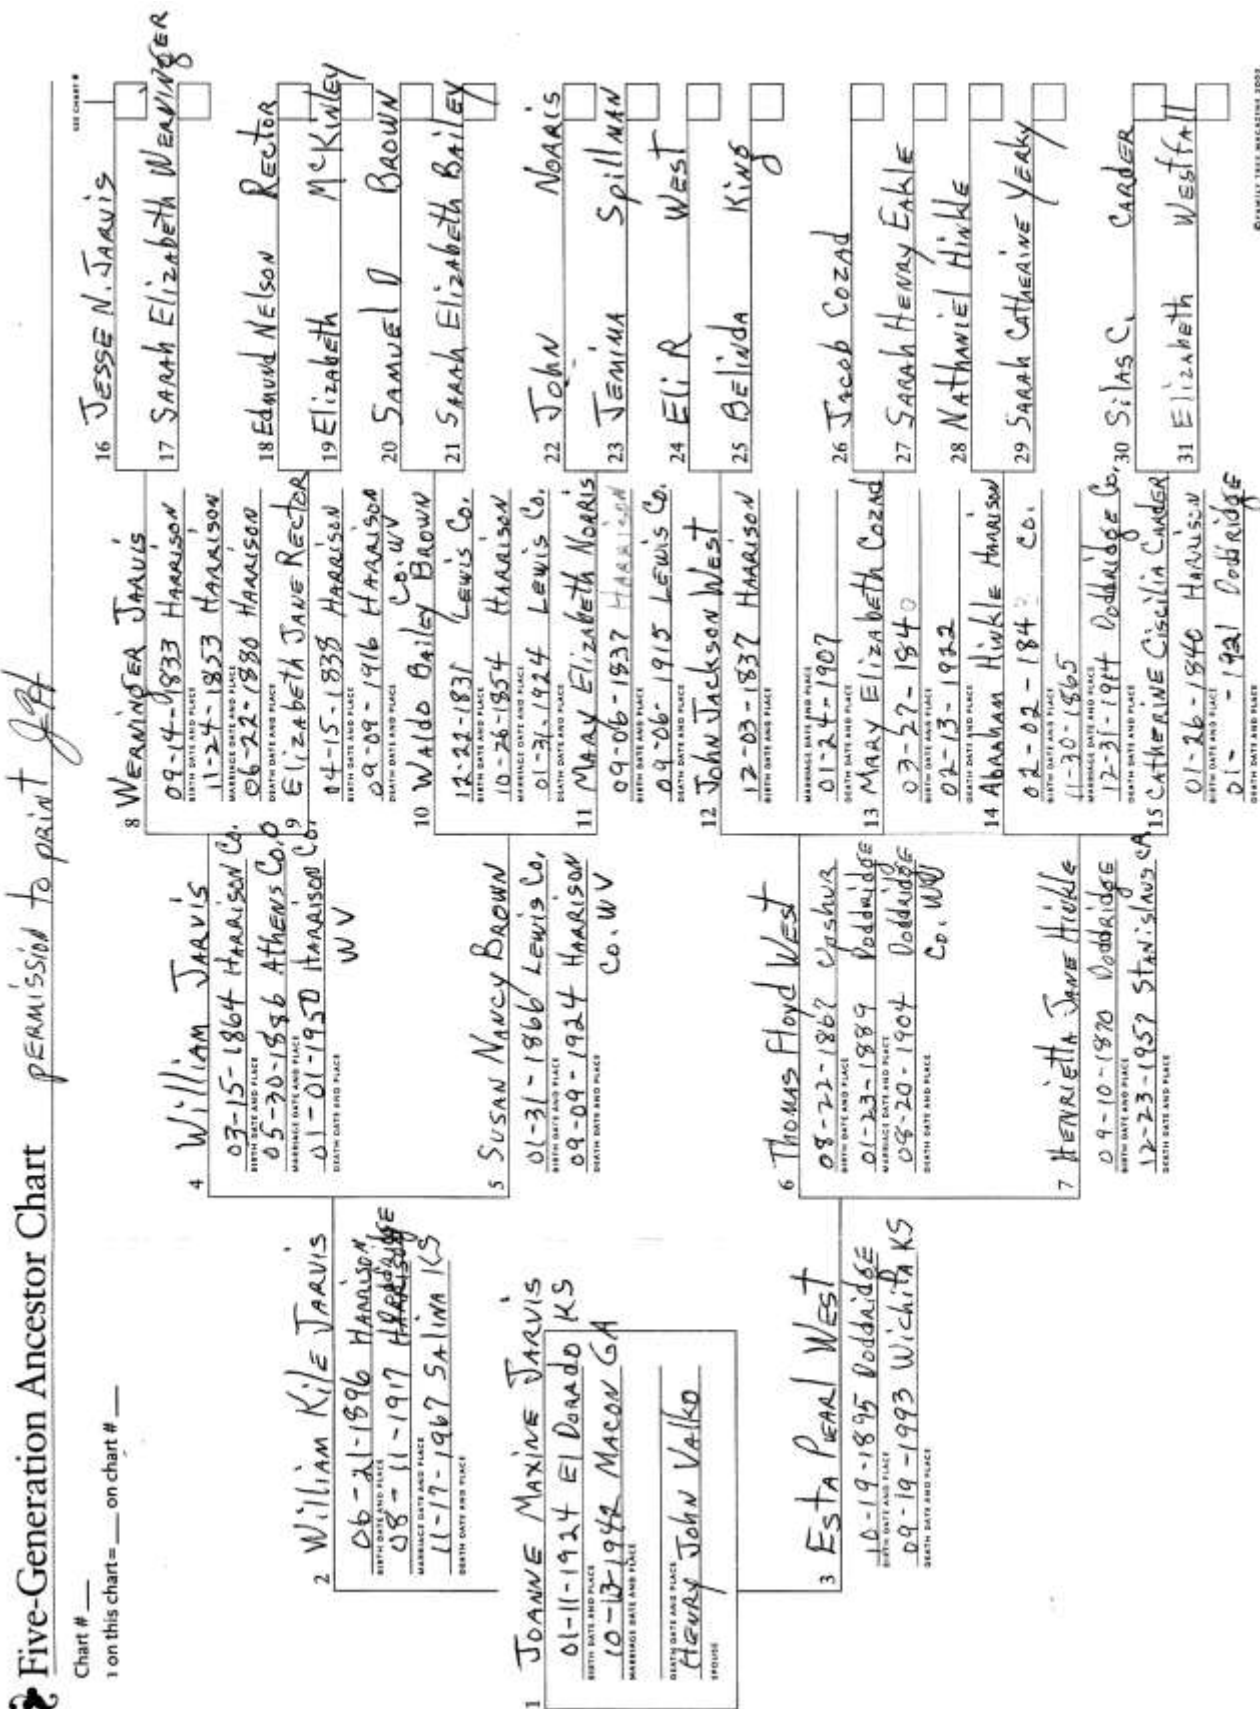 Five-Generation Ancestor Chart
permission to print
Chart # ___
1 on this chart= ___ on chart # ___
SEE CHART #
1 JOANNE MAXINE JARVIS
01-11-1924 El DORADO KS
BIRTH DATE AND PLACE
10-13-1942 MACON GA
MARRIAGE DATE AND PLACE
DEATH DATE AND PLACE
HENRY JOHN VALKO
SPOUSE
2 William Kile JARVIS
06-21-1896 HARRISON
BIRTH DATE AND PLACE
08-11-1917
MARRIAGE DATE AND PLACE
11-17-1967 SALINA KS
DEATH DATE AND PLACE
3 EstA PEARL WEST
10-19-1895 DoddRidGE
BIRTH DATE AND PLACE
09-19-1993 WichitA KS
DEATH DATE AND PLACE
4 William JARVIS
03-15-1864 HARRISON Co.
BIRTH DATE AND PLACE
05-30-1886 AtHENS Co. O
MARRIAGE DATE AND PLACE
01-01-1950 HARRISON Co.
DEATH DATE AND PLACE
WV
5 SUSAN NANCY BROWN
01-31-1866 LEWIS Co.
BIRTH DATE AND PLACE
09-09-1924 HARRISON
DEATH DATE AND PLACE
Co. WV
6 THOMAS Floyd WEST
08-22-1867 Upshur
BIRTH DATE AND PLACE
01-23-1889 DoddRidGE
MARRIAGE DATE AND PLACE
08-20-1904 DoddRidGE
DEATH DATE AND PLACE
Co. WV
7 HENRIEttA JANE HiNKlE
09-10-1870 DoddRidGE
BIRTH DATE AND PLACE
12-23-1957 StANislAus CA
DEATH DATE AND PLACE
8 WERNINGER JARVIS
09-14-1833 HARRISON
BIRTH DATE AND PLACE
11-24-1853 HARRISON
MARRIAGE DATE AND PLACE
06-22-1880 HARRISON
DEATH DATE AND PLACE
9 ElizABEtH JANE RECtoR
04-15-1838 HARRISON
BIRTH DATE AND PLACE
09-09-1916 HARRISON
DEATH DATE AND PLACE
Co. WV
10 WAldo BAilEy BROWN
12-22-1831 LEWIS Co.
BIRTH DATE AND PLACE
10-26-1854 HARRISON
MARRIAGE DATE AND PLACE
01-31-1924 LEWIS Co.
DEATH DATE AND PLACE
11 MARY ElizABEtH NORRIS
09-06-1837 HARRISON
BIRTH DATE AND PLACE
09-06-1915 LEWIS Co.
DEATH DATE AND PLACE
12 JOHN JACKSON WEST
12-03-1837 HARRISON
BIRTH DATE AND PLACE
MARRIAGE DATE AND PLACE
01-24-1907
DEATH DATE AND PLACE
13 MARY ElizABEtH COZAd
03-27-1840
BIRTH DATE AND PLACE
02-13-1922
DEATH DATE AND PLACE
14 AbRAHAM HiNKlE HARRISON
02-02-184 Co.
BIRTH DATE AND PLACE
11-30-1865
MARRIAGE DATE AND PLACE
12-31-1914 DoddRidGE Co.
DEATH DATE AND PLACE
15 CAtHERINE CisciliA CARdER
01-26-1840 HARRISON
BIRTH DATE AND PLACE
01- -1921 DoddRidGE
DEATH DATE AND PLACE
16 JESSE N. JARVIS
17 SARAH ElizABEtH WERNINGER
18 Edmund NElson RECtoR
19 ElizABEtH McKiNlEy
20 SAMUEl D BROWN
21 SARAH ElizABEtH BAilEy
22 JOHN NORRIS
23 JEMIMA SpillMAN
24 Eli R WEST
25 BEliNDA KiNG
26 JACOB COZAd
27 SARAH HENRY EAKlE
28 NAtHANiEl HiNKlE
29 SARAH CAtHERiNE YERKy
30 SilAS C. CARDER
31 ElizABEtH WEStfAll
©FAMILY TREE MAGAZINE 2002